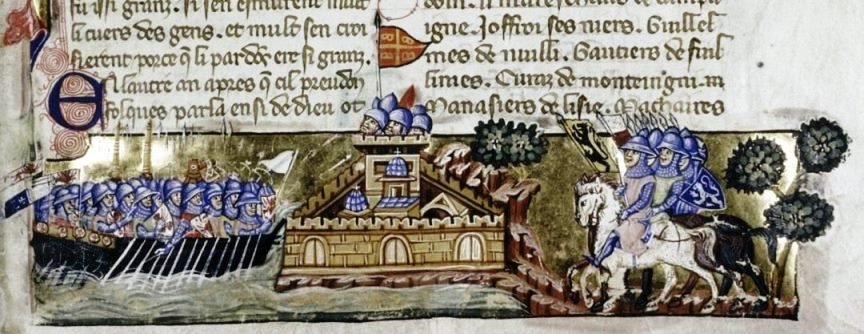 fu issi granz. si sen esmurent mult
li cuers des gens. et mult sen croi
sierent porce q̃ li pardõs ere si granz.
En lautre an apres q̃ cil preudõ
folques parla ensi de dieu ot
igne. Joffroi ses niers. Guillel
mes de nuilli. Gautiers de fuil
limes. Euraz de monteingni.
Manasiers de lisle. Machaires